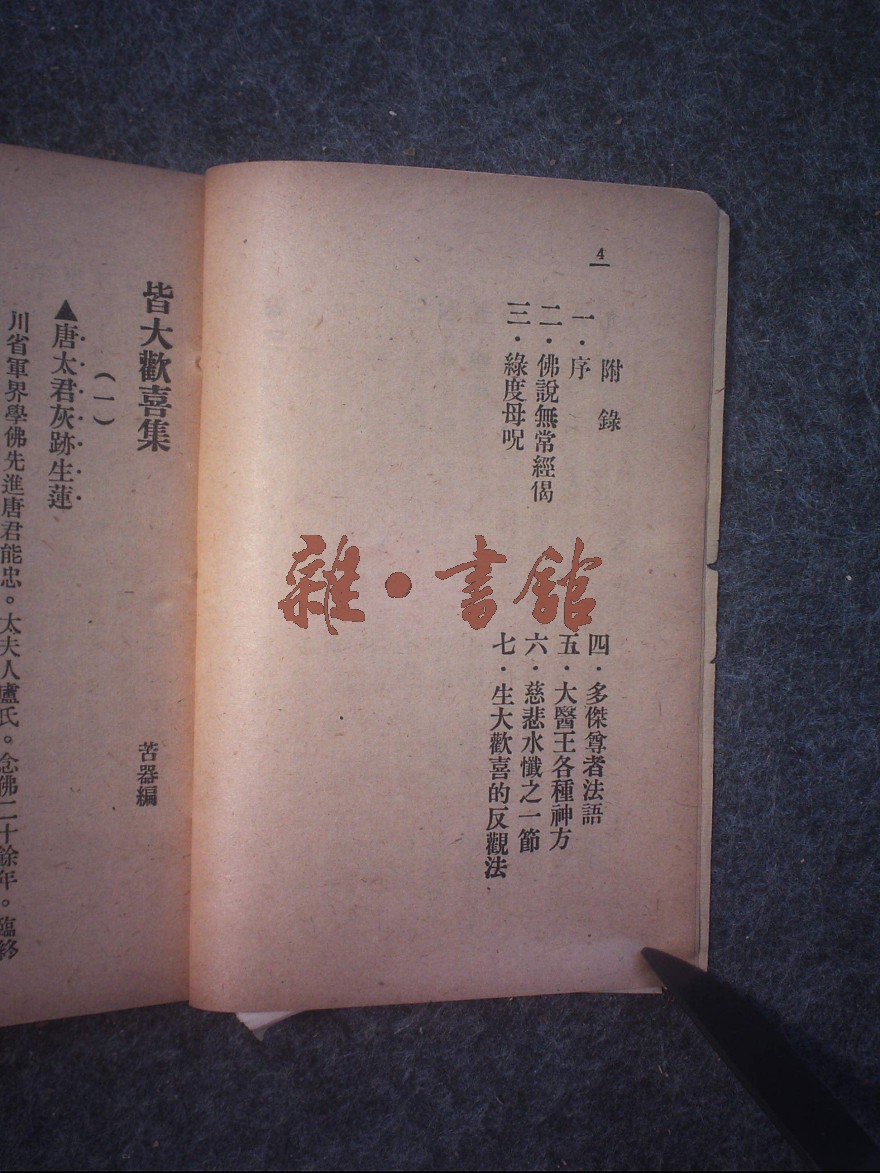 4
附錄
一・序
二・佛說無常經偈
三・綠度母呪
四・多傑尊者法語
五・大醫王各種神方
六・慈悲水懺之一節
七・生大歡喜的反觀法
雜・書館
皆大歡喜集
(一)
苦器編
▲唐太君灰跡生蓮
川省軍界學佛先進唐君能忠。太夫人盧氏。念佛二十餘年。臨終